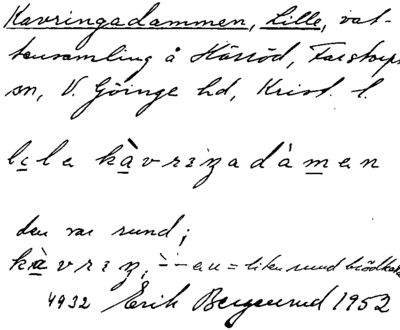 Kavringadammen, Lille, vat-
tensamling å Hässöd, Farstorps
sn, V. Göinge hd, Krist. l.
lıla kàvrıŋadámen
den var rund;
kàvrıŋ, -en = liten rund brödkaka
4932 Erik Bergerud 1952